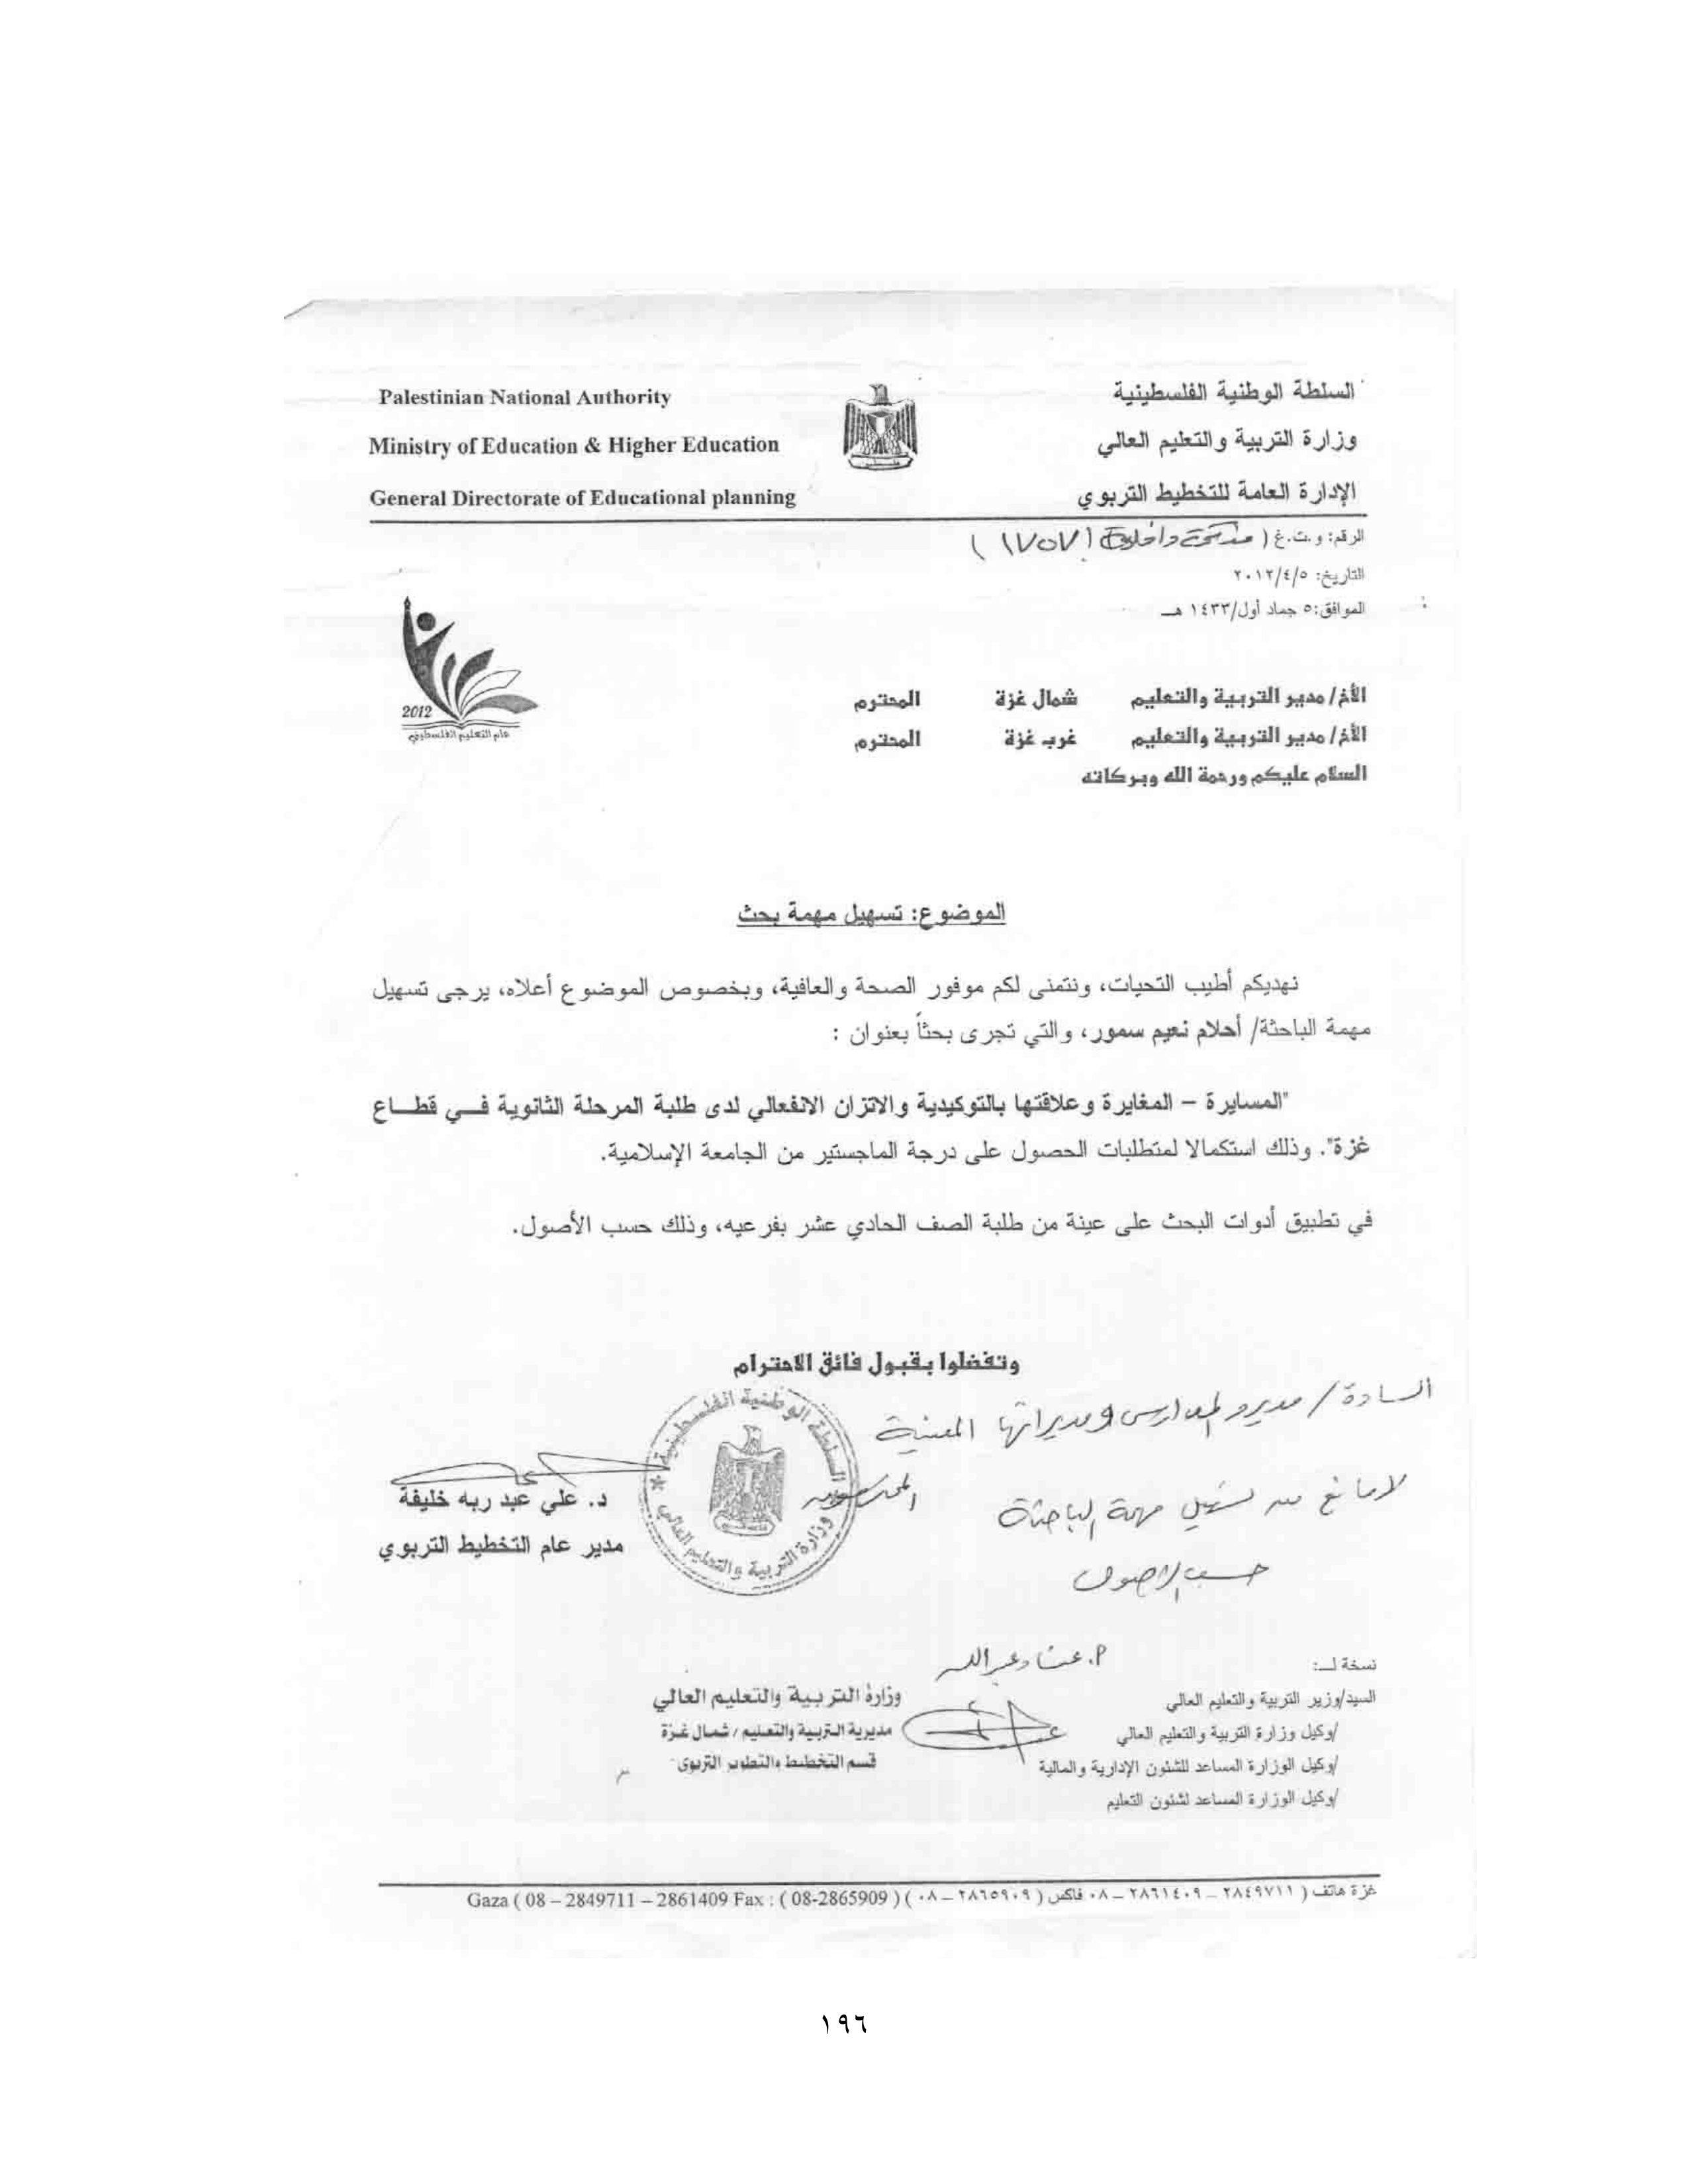 Palestinian National Authority
السلطة الوطنية الفلسطينية
Ministry of Education & Higher Education
وزارة التربية والتعليم العالي
General Directorate of Educational planning
الإدارة العامة للتخطيط التربوي
الرقم: و.ت.غ ( مذكرة داخلية (١٧٥٧ )
التاريخ: ٢٠١٢/٤/٥
الموافق:٥ جماد أول/١٤٣٣ هـ
2012
عام التعليم الفلسطيني
الأخ/ مدير التربية والتعليم شمال غزة المحترم
الأخ/ مدير التربية والتعليم غرب غزة المحترم
السلام عليكم ورحمة الله وبركاته
الموضوع: تسهيل مهمة بحث
نهديكم أطيب التحيات، ونتمنى لكم موفور الصحة والعافية، وبخصوص الموضوع أعلاه، يرجى تسهيل
مهمة الباحثة/ أحلام نعيم سمور، والتي تجرى بحثاً بعنوان :
"المسايرة – المغايرة وعلاقتها بالتوكيدية والاتزان الانفعالي لدى طلبة المرحلة الثانوية فـي قطـاع
غزة". وذلك استكمالا لمتطلبات الحصول على درجة الماجستير من الجامعة الإسلامية.
في تطبيق أدوات البحث على عينة من طلبة الصف الحادي عشر بفرعيه، وذلك حسب الأصول.
وتفضلوا بقبول فائق الاحترام
السادة / مديرو المدارس ومديراتها المعنية
المحترمون
لا مانع من تسهيل مهمة الباحثة
حسب الأصول
السلطة الوطنية الفلسطينية
وزارة التربية والتعليم العالي
د. علي عبد ربه خليفة
مدير عام التخطيط التربوي
نسخة لـ:
السيد/وزير التربية والتعليم العالي
/وكيل وزارة التربية والتعليم العالي
/وكيل الوزارة المساعد للشئون الإدارية والمالية
/وكيل الوزارة المساعد لشئون التعليم
وزارة التربية والتعليم العالي
مديرية التربية والتعليم / شمال غزة
قسم التخطيط والتطوير التربوي
غزة هاتف ( ٢٨٤٩٧١١ – ٢٨٦١٤٠٩ – ٠٨ فاكس ( ٢٨٦٥٩٠٩ – ٠٨ ) Gaza ( 08 – 2849711 – 2861409 Fax : ( 08-2865909 )
١٩٦